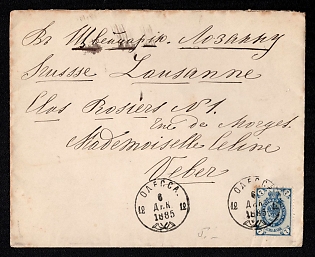 Въ Швейцарію. Лозанну
Suisse Lausanne
Clos Rosiers N 1.
Ene de Morges.
Mademoiselle Celine
Veber
ОДЕССА.
6
12 ДЕК. 12
1885
ОДЕССА.
6
12 ДЕК.
1885